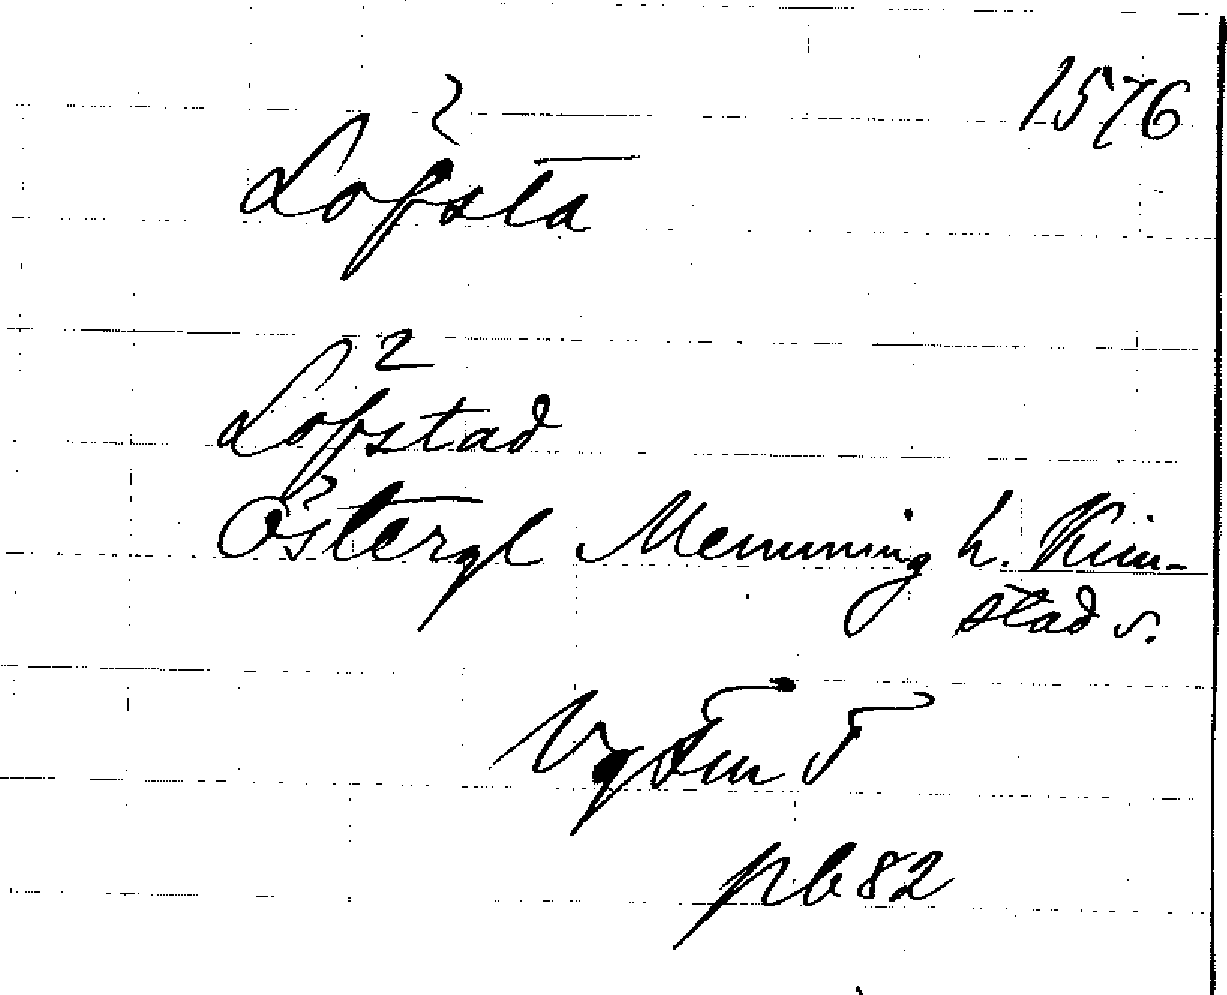 1576
Löfsta
Löfstad
Östergl Memming h. Kim-
stad s.
pb 82